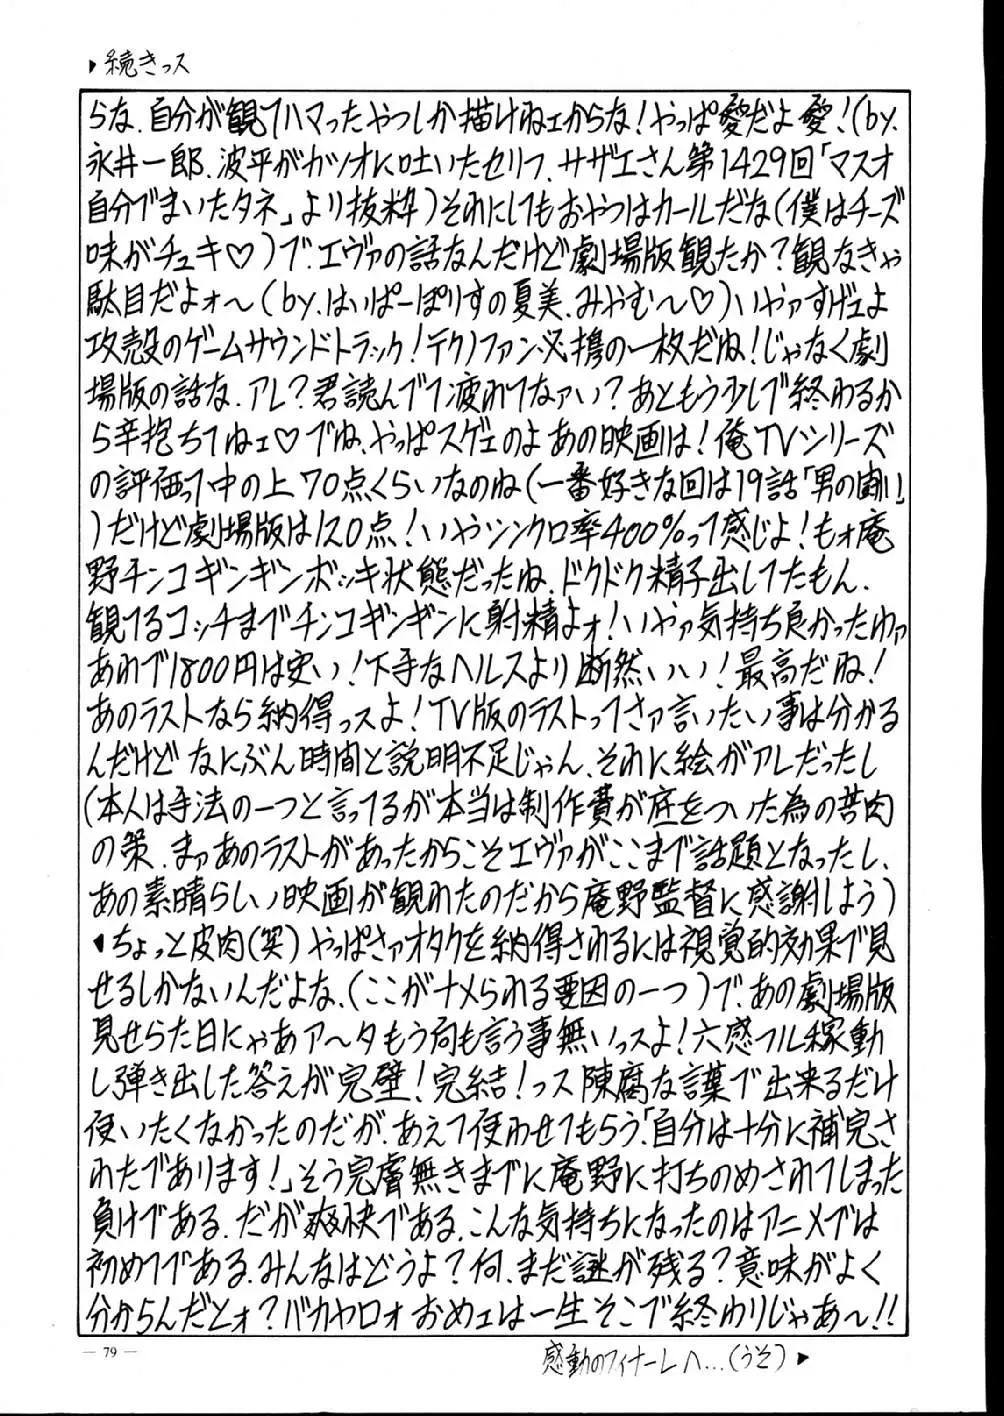 ▶続きっス
らな、自分が観てハマったやつしか描けねェからな！やっぱ愛だよ愛！（by.
永井一郎、波平がカツオに吐いたセリフ、サザエさん第1429回「マスオ
自分でまいたタネ」より抜粋）それにしてもおやつはカールだな（僕はチーズ
味がチュキ♡）で、エヴァの話なんだけど劇場版観たか？観なきゃ
駄目だよォ〜（by.はいぱーぽりすの夏美、みやむ〜♡）いやァすげェよ
攻殻のゲームサウンドトラック！テクノファン必携の一枚だね！じゃなく劇
場版の話な、アレ？君読んでて疲れてなァい？あともう少しで終わるか
ら辛抱ちてねェ♡でね、やっぱスゲェのよあの映画は！俺TVシリーズ
の評価って中の上70点くらいなのね（一番好きな回は19話「男の闘い」
）だけど劇場版は120点！いやシンクロ率400%って感じよ！もォ庵
野チンコギンギンボッキ状態だったね、ドクドク精子出してたもん、
観てるコッチまでチンコギンギンに射精よォ！いやァ気持ち良かったわァ
あれで1800円は安い！下手なヘルスより断然いい！最高だね！
あのラストなら納得っスよ！TV版のラストってさァ言いたい事は分かる
んだけどなにぶん時間と説明不足じゃん、それに絵がアレだったし
（本人は手法の一つと言ってるが本当は制作費が底をついた為の苦肉
の策、まァあのラストがあったからこそエヴァがここまで話題となったし、
あの素晴らしい映画が観れたのだから庵野監督に感謝しよう）
♥ちょっと皮肉（笑）やっぱさァオタクを納得されるには視覚的効果で見
せるしかないんだよな、（ここがナメられる要因の一つ）で、あの劇場版
見せらた日にゃあア〜タもう何も言う事無いっスよ！六感フル稼動
し弾き出した答えが完璧！完結！っス陳腐な言葉で出来るだけ
使いたくなかったのだが、あえて使わせてもらう、「自分は十分に補完さ
れたであります！」そう完膚無きまでに庵野に打ちのめされてしまった
負けである、だが爽快である、こんな気持ちになったのはアニメでは
初めてである、みんなはどうよ？何、まだ謎が残る？意味がよく
分からんだとォ？バカヤロォおめェは一生そこで終わりじゃあ〜!!
— 79 —
感動のフィナーレへ…（うそ）▶